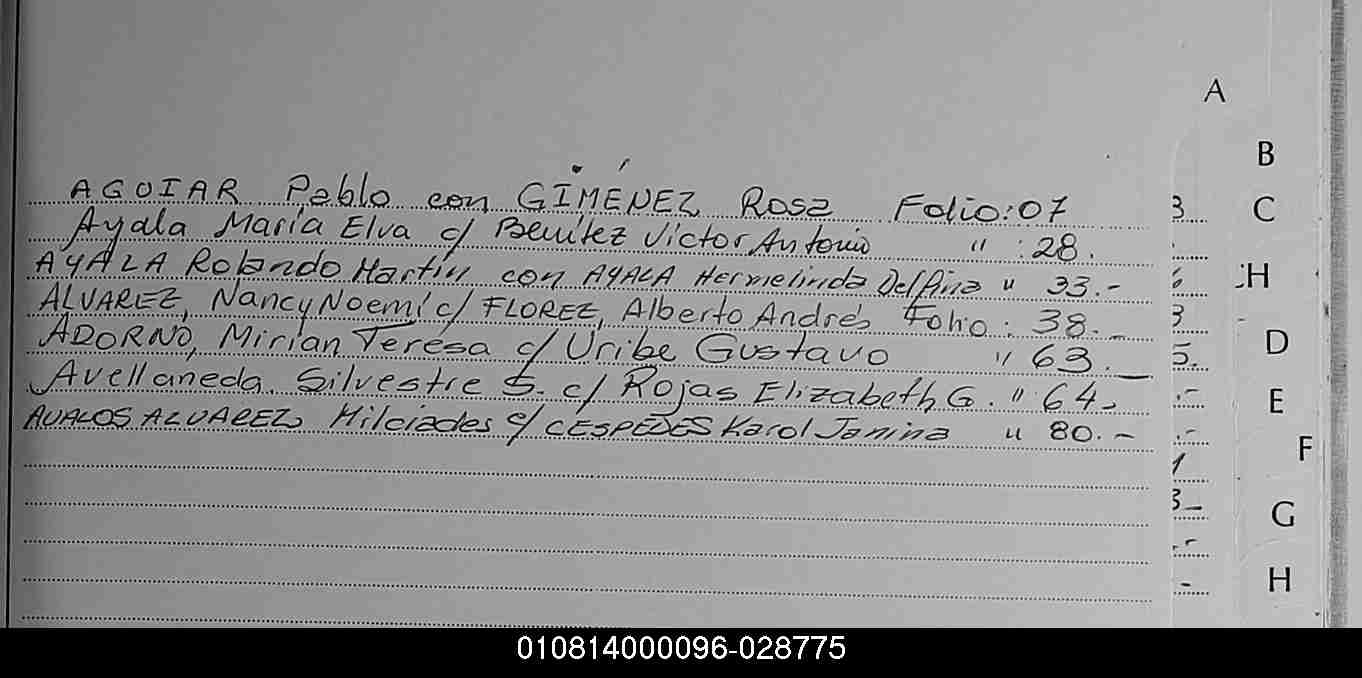 A
AGUIAR Pablo con GIMÉNEZ Rosa Folio: 07
Ayala María Elva c/ Benítez Victor Antonio " : 28.
AYALA Rolando Martín con AYALA Hermelinda Delfina " 33.-
ALVAREZ, Nancy Noemí c/ FLOREZ, Alberto Andrés Folio: 38.-
ADORNO, Mirian Teresa c/ Uribe Gustavo " 63.-
Avellaneda. Silvestre S. c/ Rojas Elizabeth G. " 64.
AVALOS ALVAREZ, Milciades c/ CESPEDES Karol Janina " 80.-
B
C
CH
D
E
F
G
H
010814000096-028775